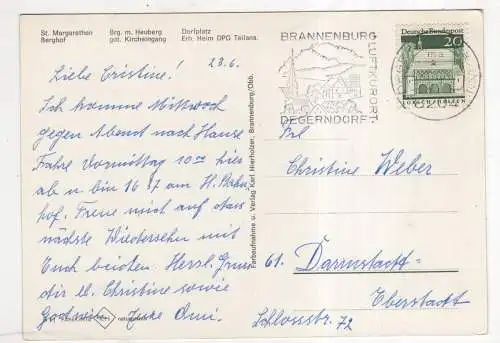 St. Margarethen Brg. m. Heuberg Dorfplatz
Berghof got. Kircheingang Erh. Heim DPG Teilans.
23.6.
Liebe Cristine!
Ich komme Mittwoch
gegen Abend nach Hause
Fahre Vormittag 10 00 hier
ab u bin 16 17 am H. Bahn
hof. Freue mich auf das
nächste Wiedersehn mit
Euch beiden. Herzl. Grüsse
dir lb. Christine sowie
Omi.
Farbaufnahme u. Verlag Karl Hierholzer, Brannenburg/Obb.
BRANNENBURG
LUFTKURORT
DEGERNDORF
Deutsche Bundespost
20
LORSCH/HESSEN
Frl
Christine Weber
61. Darmstadt-
Eberstadt
Schlossstr. 72